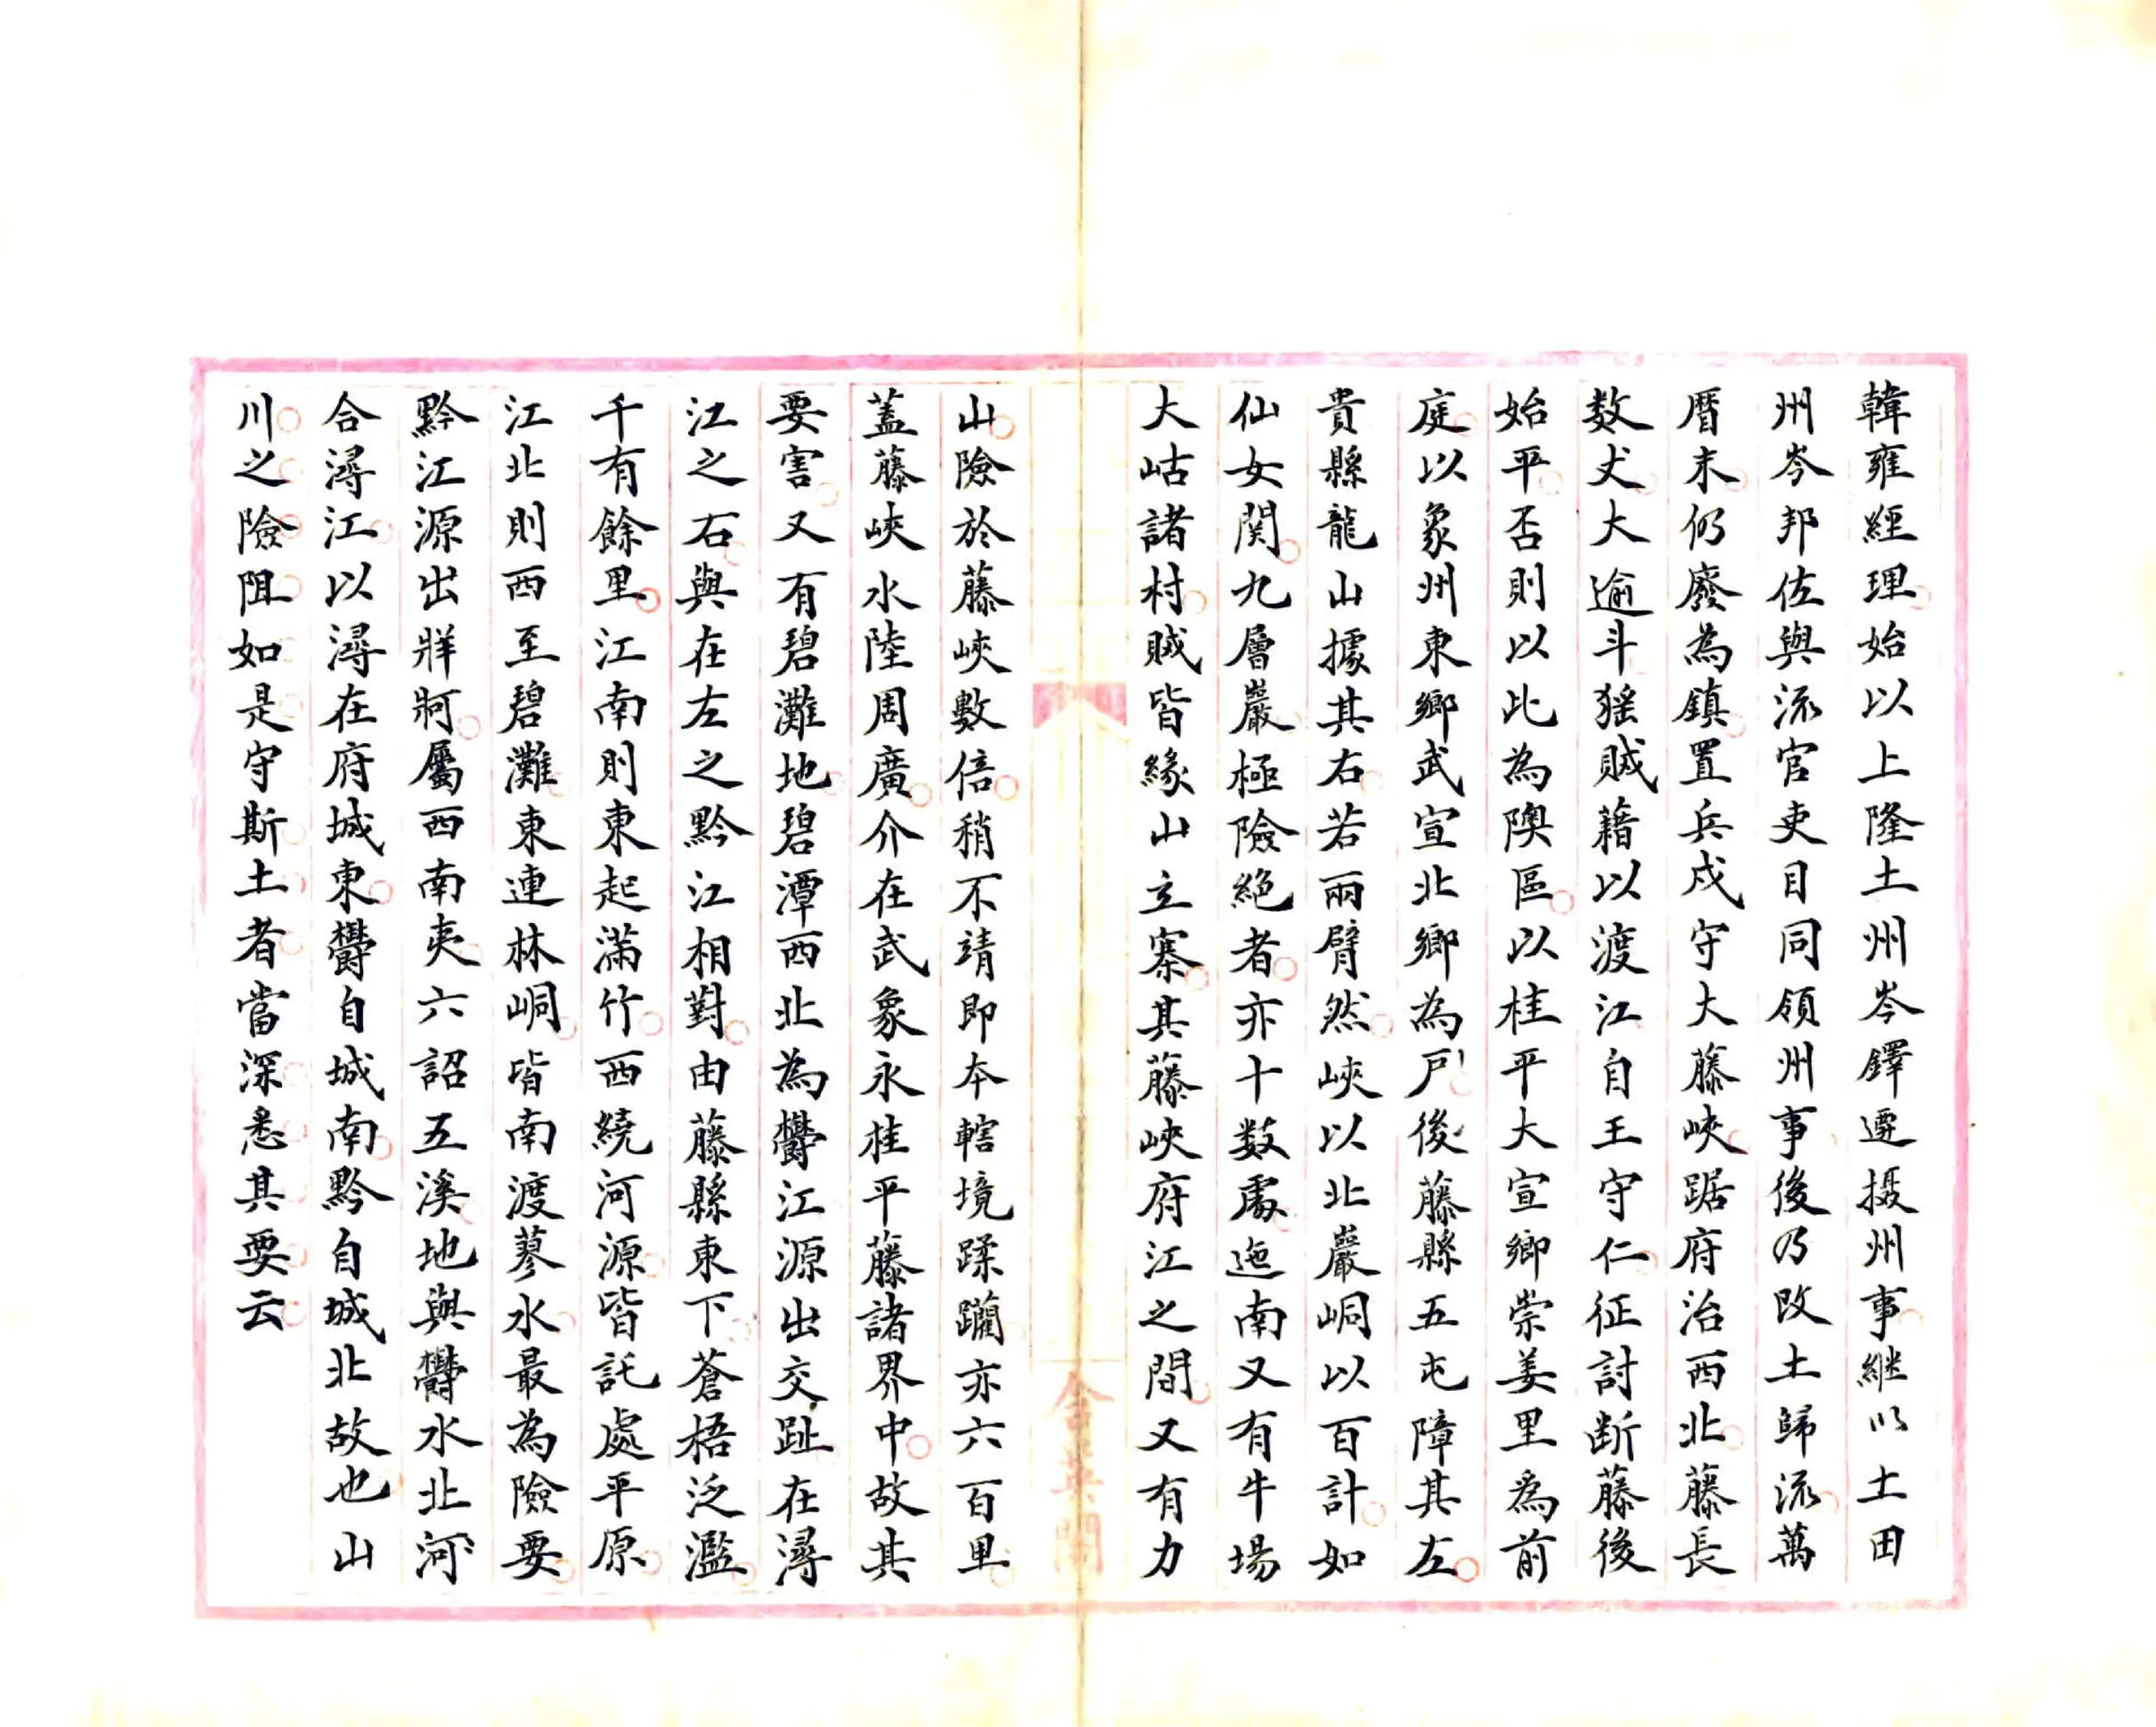 韓雍經理始以上隆土州岑鐸遷摄州事継以土田
州岑邦佐與流官吏目同領州事後乃改土歸流萬
曆末仍廢為鎮置兵戍守大藤峽踞府治西北藤長
数丈大逾斗猺賊藉以渡江自王守仁征討断藤後
始平否則以此為隩區以桂平大宣鄉崇姜里為前
庭以象州東鄉武宣北鄉為戶後藤縣五屯障其左
貴縣龍山據其右若兩臂然峽以北巖峒以百計如
仙女関九層巖極險絕者亦十数處迤南又有牛場
大岵諸村賊皆緣山立寨其藤峽府江之間又有力
山險於藤峽數倍稍不靖即本轄境蹂躪亦六百里
蓋藤峽水陸周廣介在武象永桂平藤諸界中故其
要害又有碧灘地碧潭西北為欝江源出交趾在潯
江之右與在左之黔江相對由藤縣東下蒼梧泛濫
千有餘里江南則東起滿竹西繞河源皆託處平原
江北則西至碧灘東連林峒皆南渡蓼水最為險要
黔江源出牂牁屬西南夷六詔五溪地與欝水北河
合潯江以潯在府城東欝自城南黔自城北故也山
川之險阻如是守斯土者當深悉其要云
含英閣